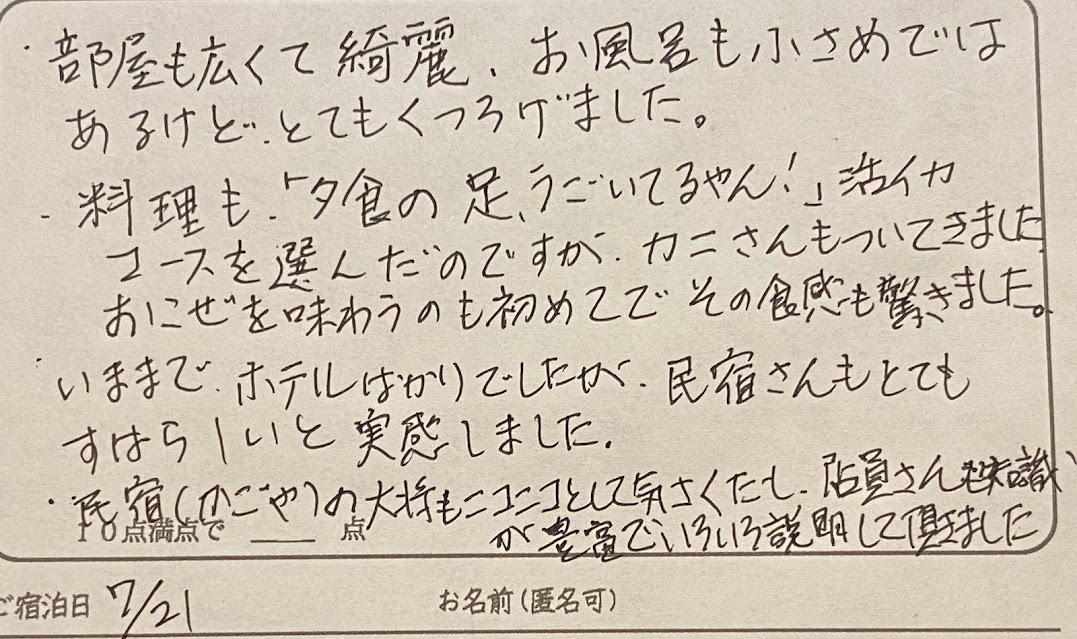 ・部屋も広くて綺麗、お風呂も小さめでは
あるけど、とてもくつろげました。
・料理も、「夕食の足、うごいてるやん!」活イカ
コースを選んだのですが、カニさんもついてきました
おにぜを味わうのも初めてでその食感も驚きました。
・いままで、ホテルばかりでしたが、民宿さんもとても
すばらしいと実感しました。
・民宿(かごや)の大将もニコニコとして気さくだし、店員さんも知識
が豊富でいろいろ説明して頂きました
10点満点で ＿＿ 点
ご宿泊日 7/21 お名前(匿名可)